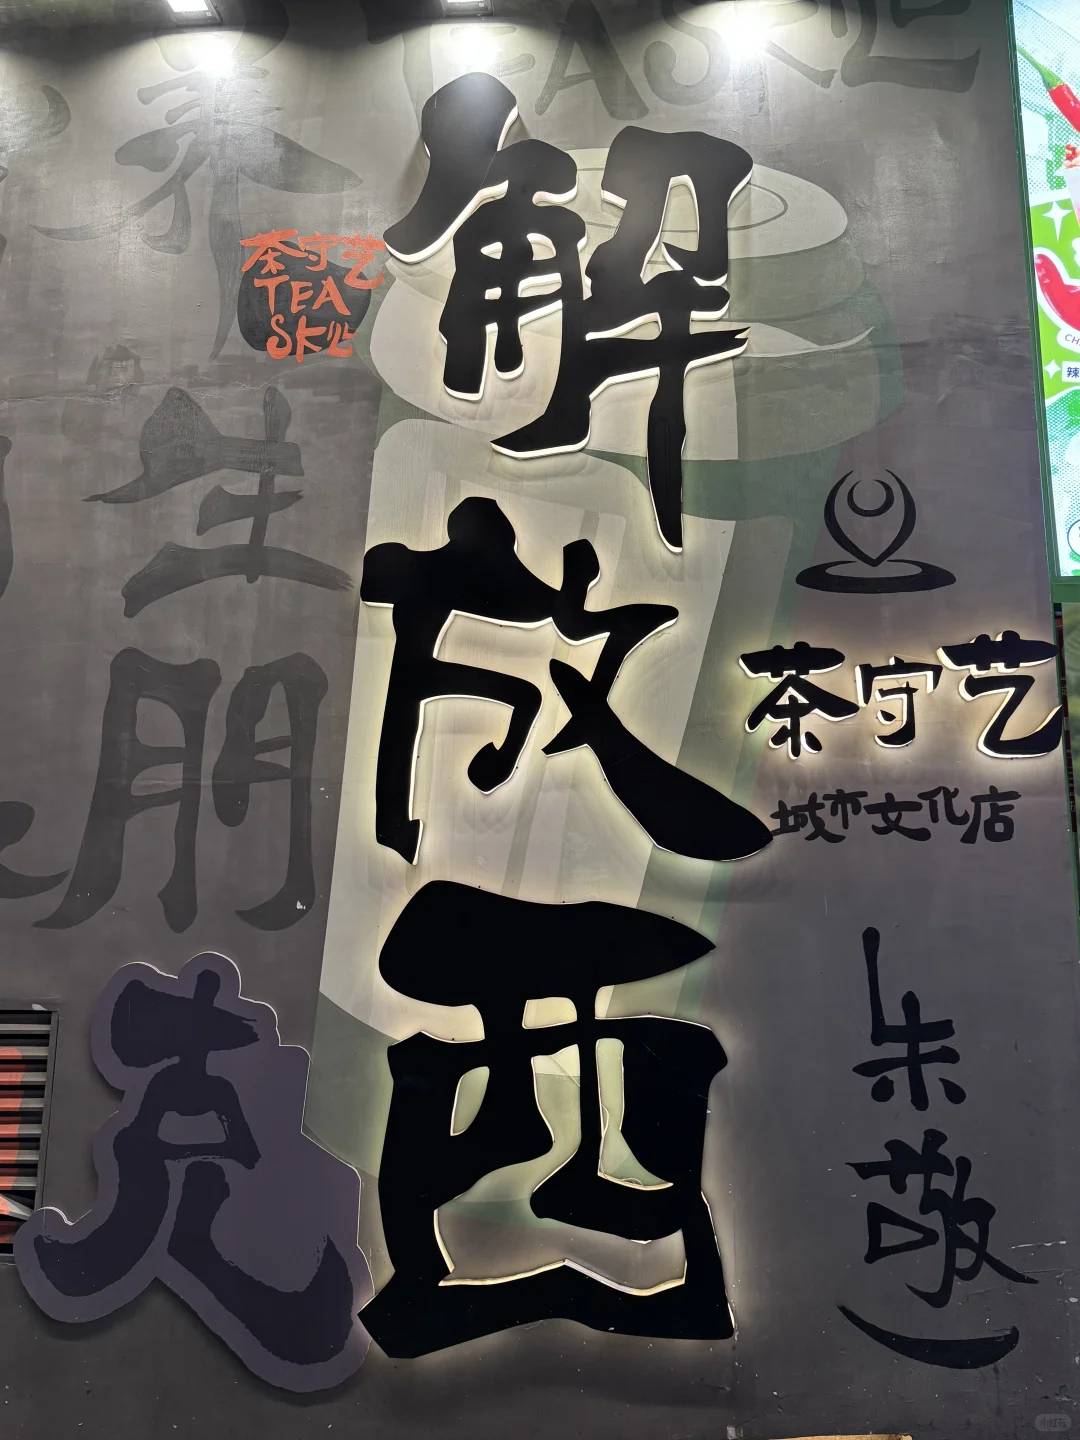 解放西
茶守艺
TEA
SK
茶守艺
城市文化店
朱敬一
生
朋
克
辣